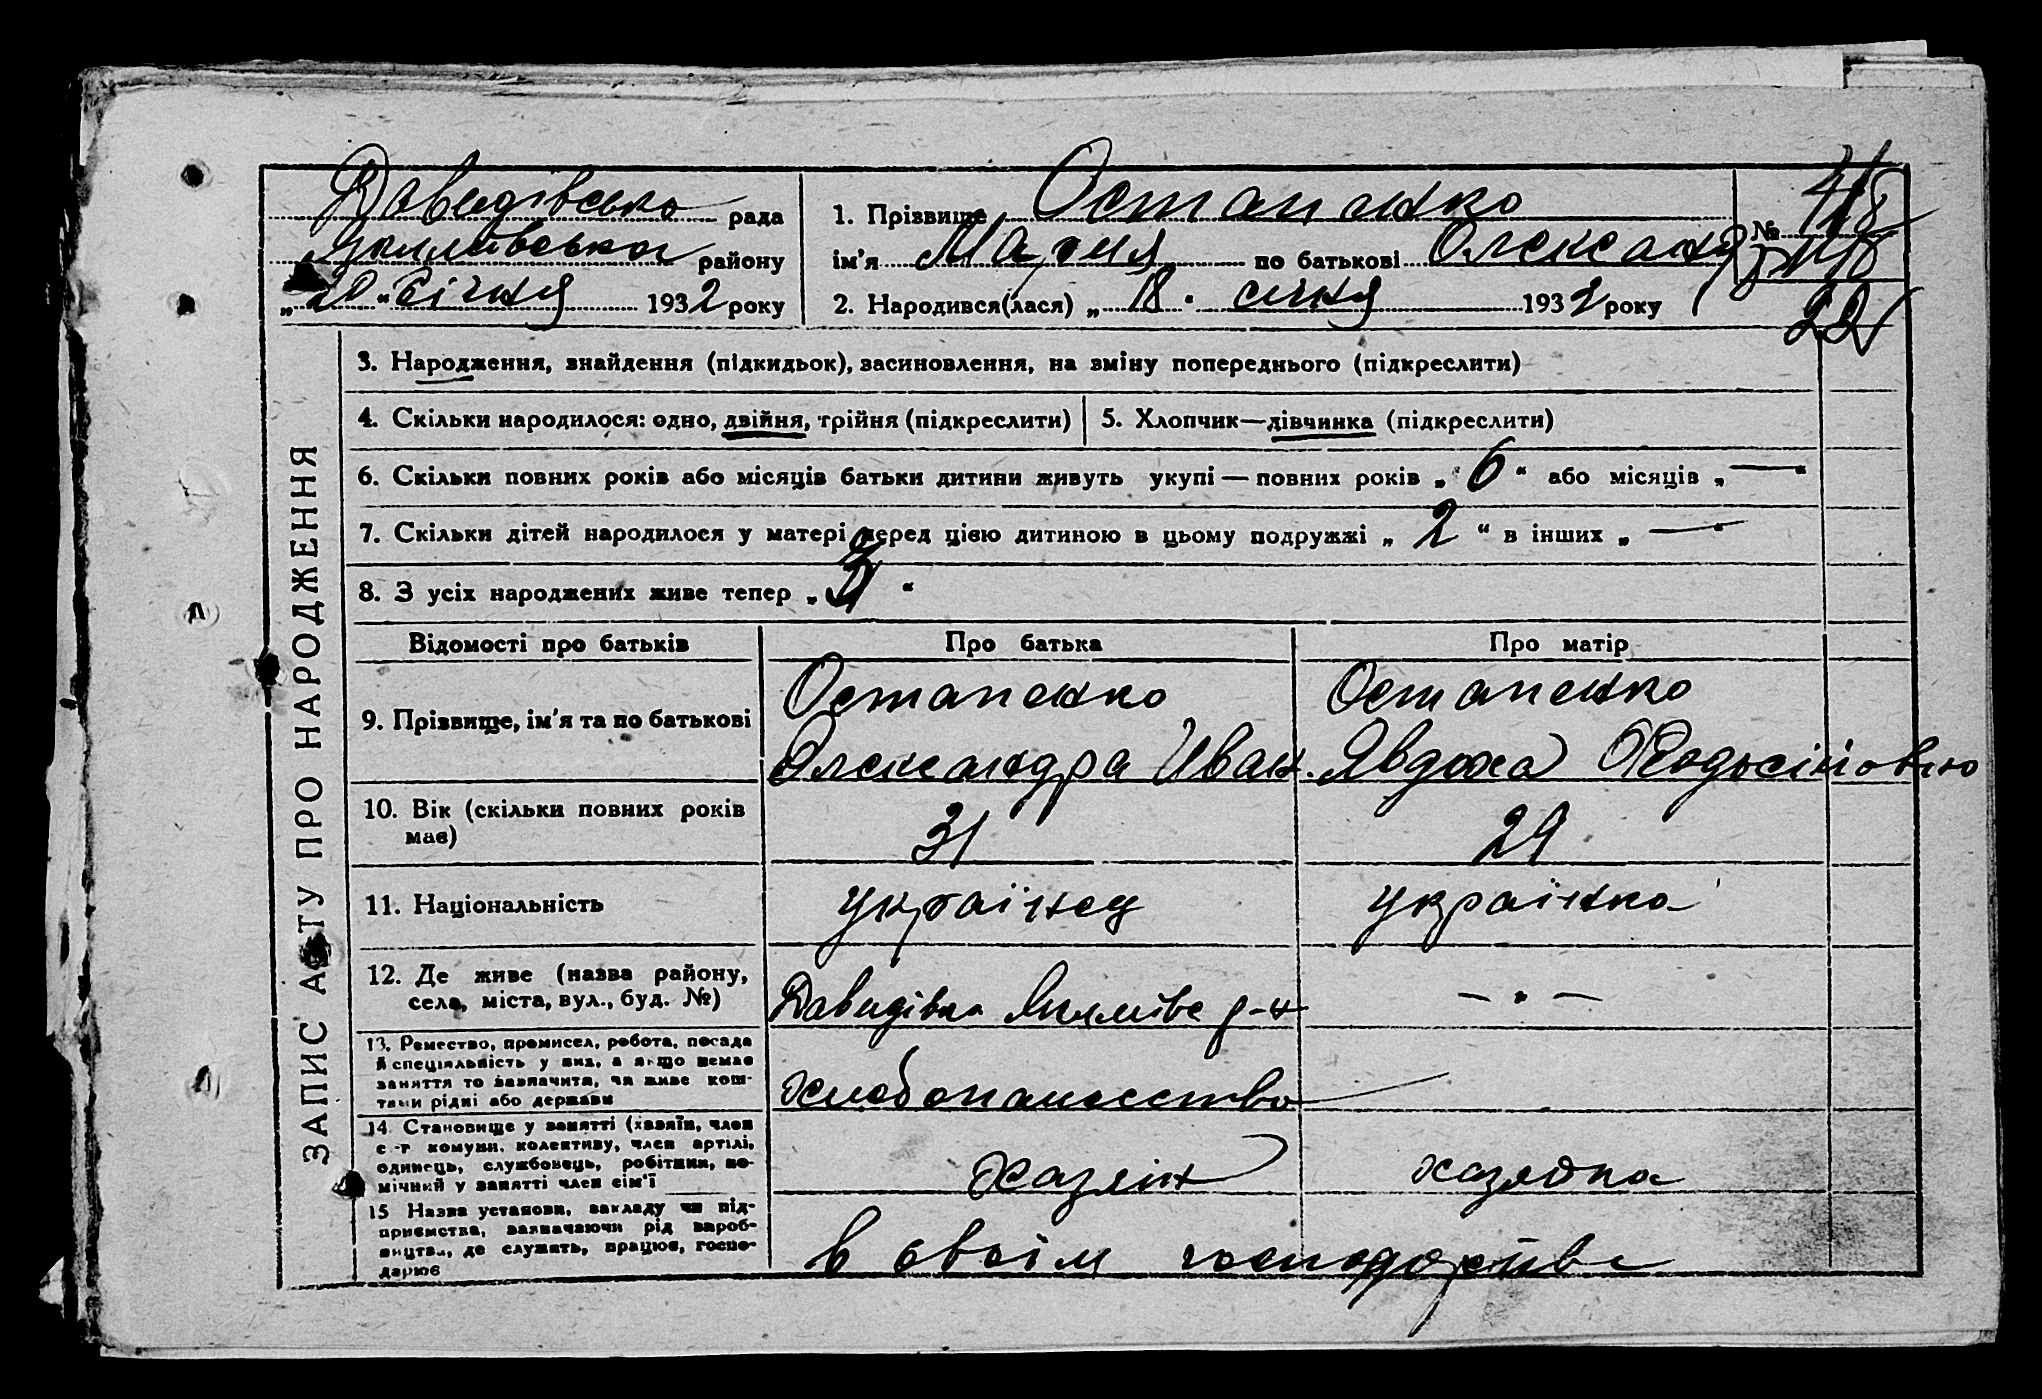 Давидівсько рада
Якимівсько району
„20“ січня 1932 року
1. Прізвище Остапенко
ім'я Мария по батькові Олександр
№
2. Народився(лася) „18“ січня 1932 року
ЗАПИС АКТУ ПРО НАРОДЖЕННЯ
3. Народження, знайдення (підкидьок), засиновлення, на зміну попереднього (підкреслити)
4. Скільки народилося: одно, двійня, трійня (підкреслити)
5. Хлопчик—дівчинка (підкреслити)
6. Скільки повних років або місяців батьки дитини живуть укупі — повних років „6“ або місяців „—“
7. Скільки дітей народилося у матері перед цією дитиною в цьому подружжі „2“ в інших „—“
8. З усіх народжених живе тепер „ “
Відомості про батьків
Про батька
Про матір
9. Прізвище, ім'я та по батькові
Остапенко
Олександра Иван.
Остапенко
Явдоха Феодосіїовно
10. Вік (скільки повних років
має)
31
29
11. Національність
українец
українка
12. Де живе (назва району,
села, міста, вул., буд. №)
Давидівка Якимівс р-н
— „ —
13. Ремество, промисел, робота, посада
й спеціяльність у них, а якщо немає
заняття то зазначити, чи живе кош-
тами рідні або держави
хлебопашество
14. Становище у занятті (хазяїн, член
с.-г комуни, колективу, член артілі,
одинець, службовець, робітник, по-
мічний у занятті член сім'ї
хазяін
хазяйка
15 Назва установи, закладу чи під-
приємства, зазначаючи рід вироб-
ництва, де служить, працює, госпо-
дарює
в своім господарстве